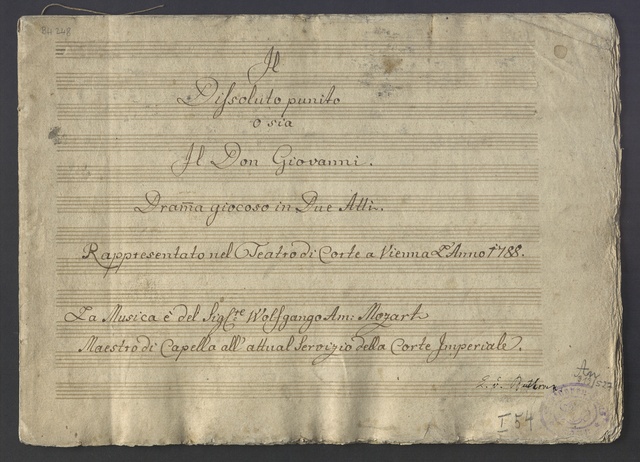 B4 248
Il
Dissoluto punito
o sia
Il Don Giovanni.
Dram̄a giocoso in Due Atti.
Rappresentato nel Teatro di Corte a Vienna L'Anno 1788.
La Musica è del Sig:re Wolfgango Am: Mozart
Maestro di Capella all' attual Servizio della Corte Imperiale.
I 54